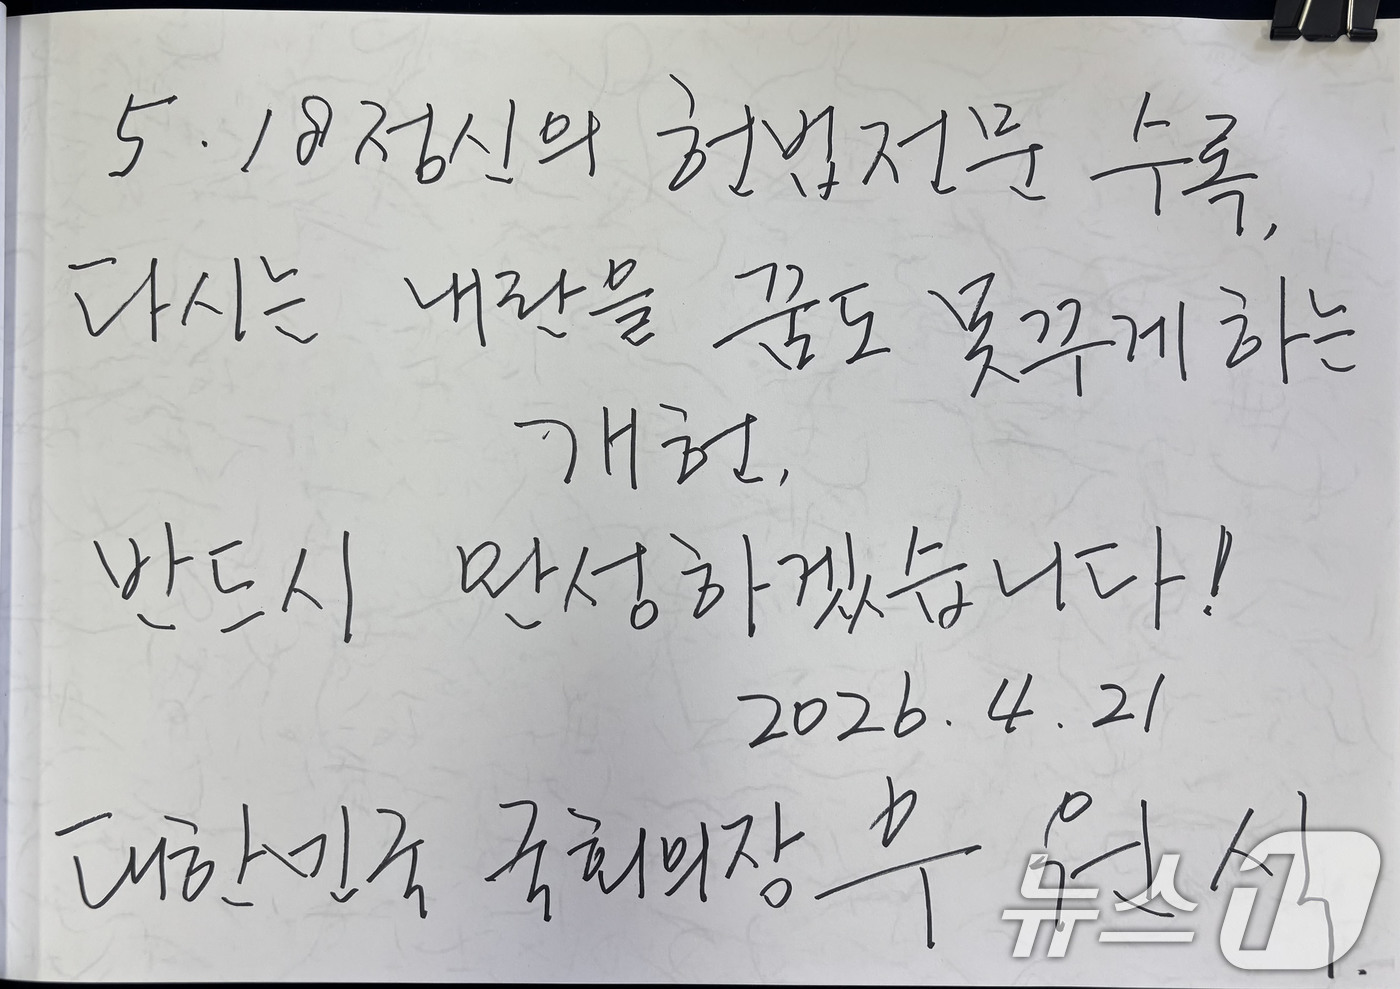 5.18정신의 헌법전문 수록,
다시는 내란을 꿈도 못꾸게 하는
개헌,
반드시 완성하겠습니다!
2026. 4. 21
대한민국 국회의장 우 원 식.
뉴스1